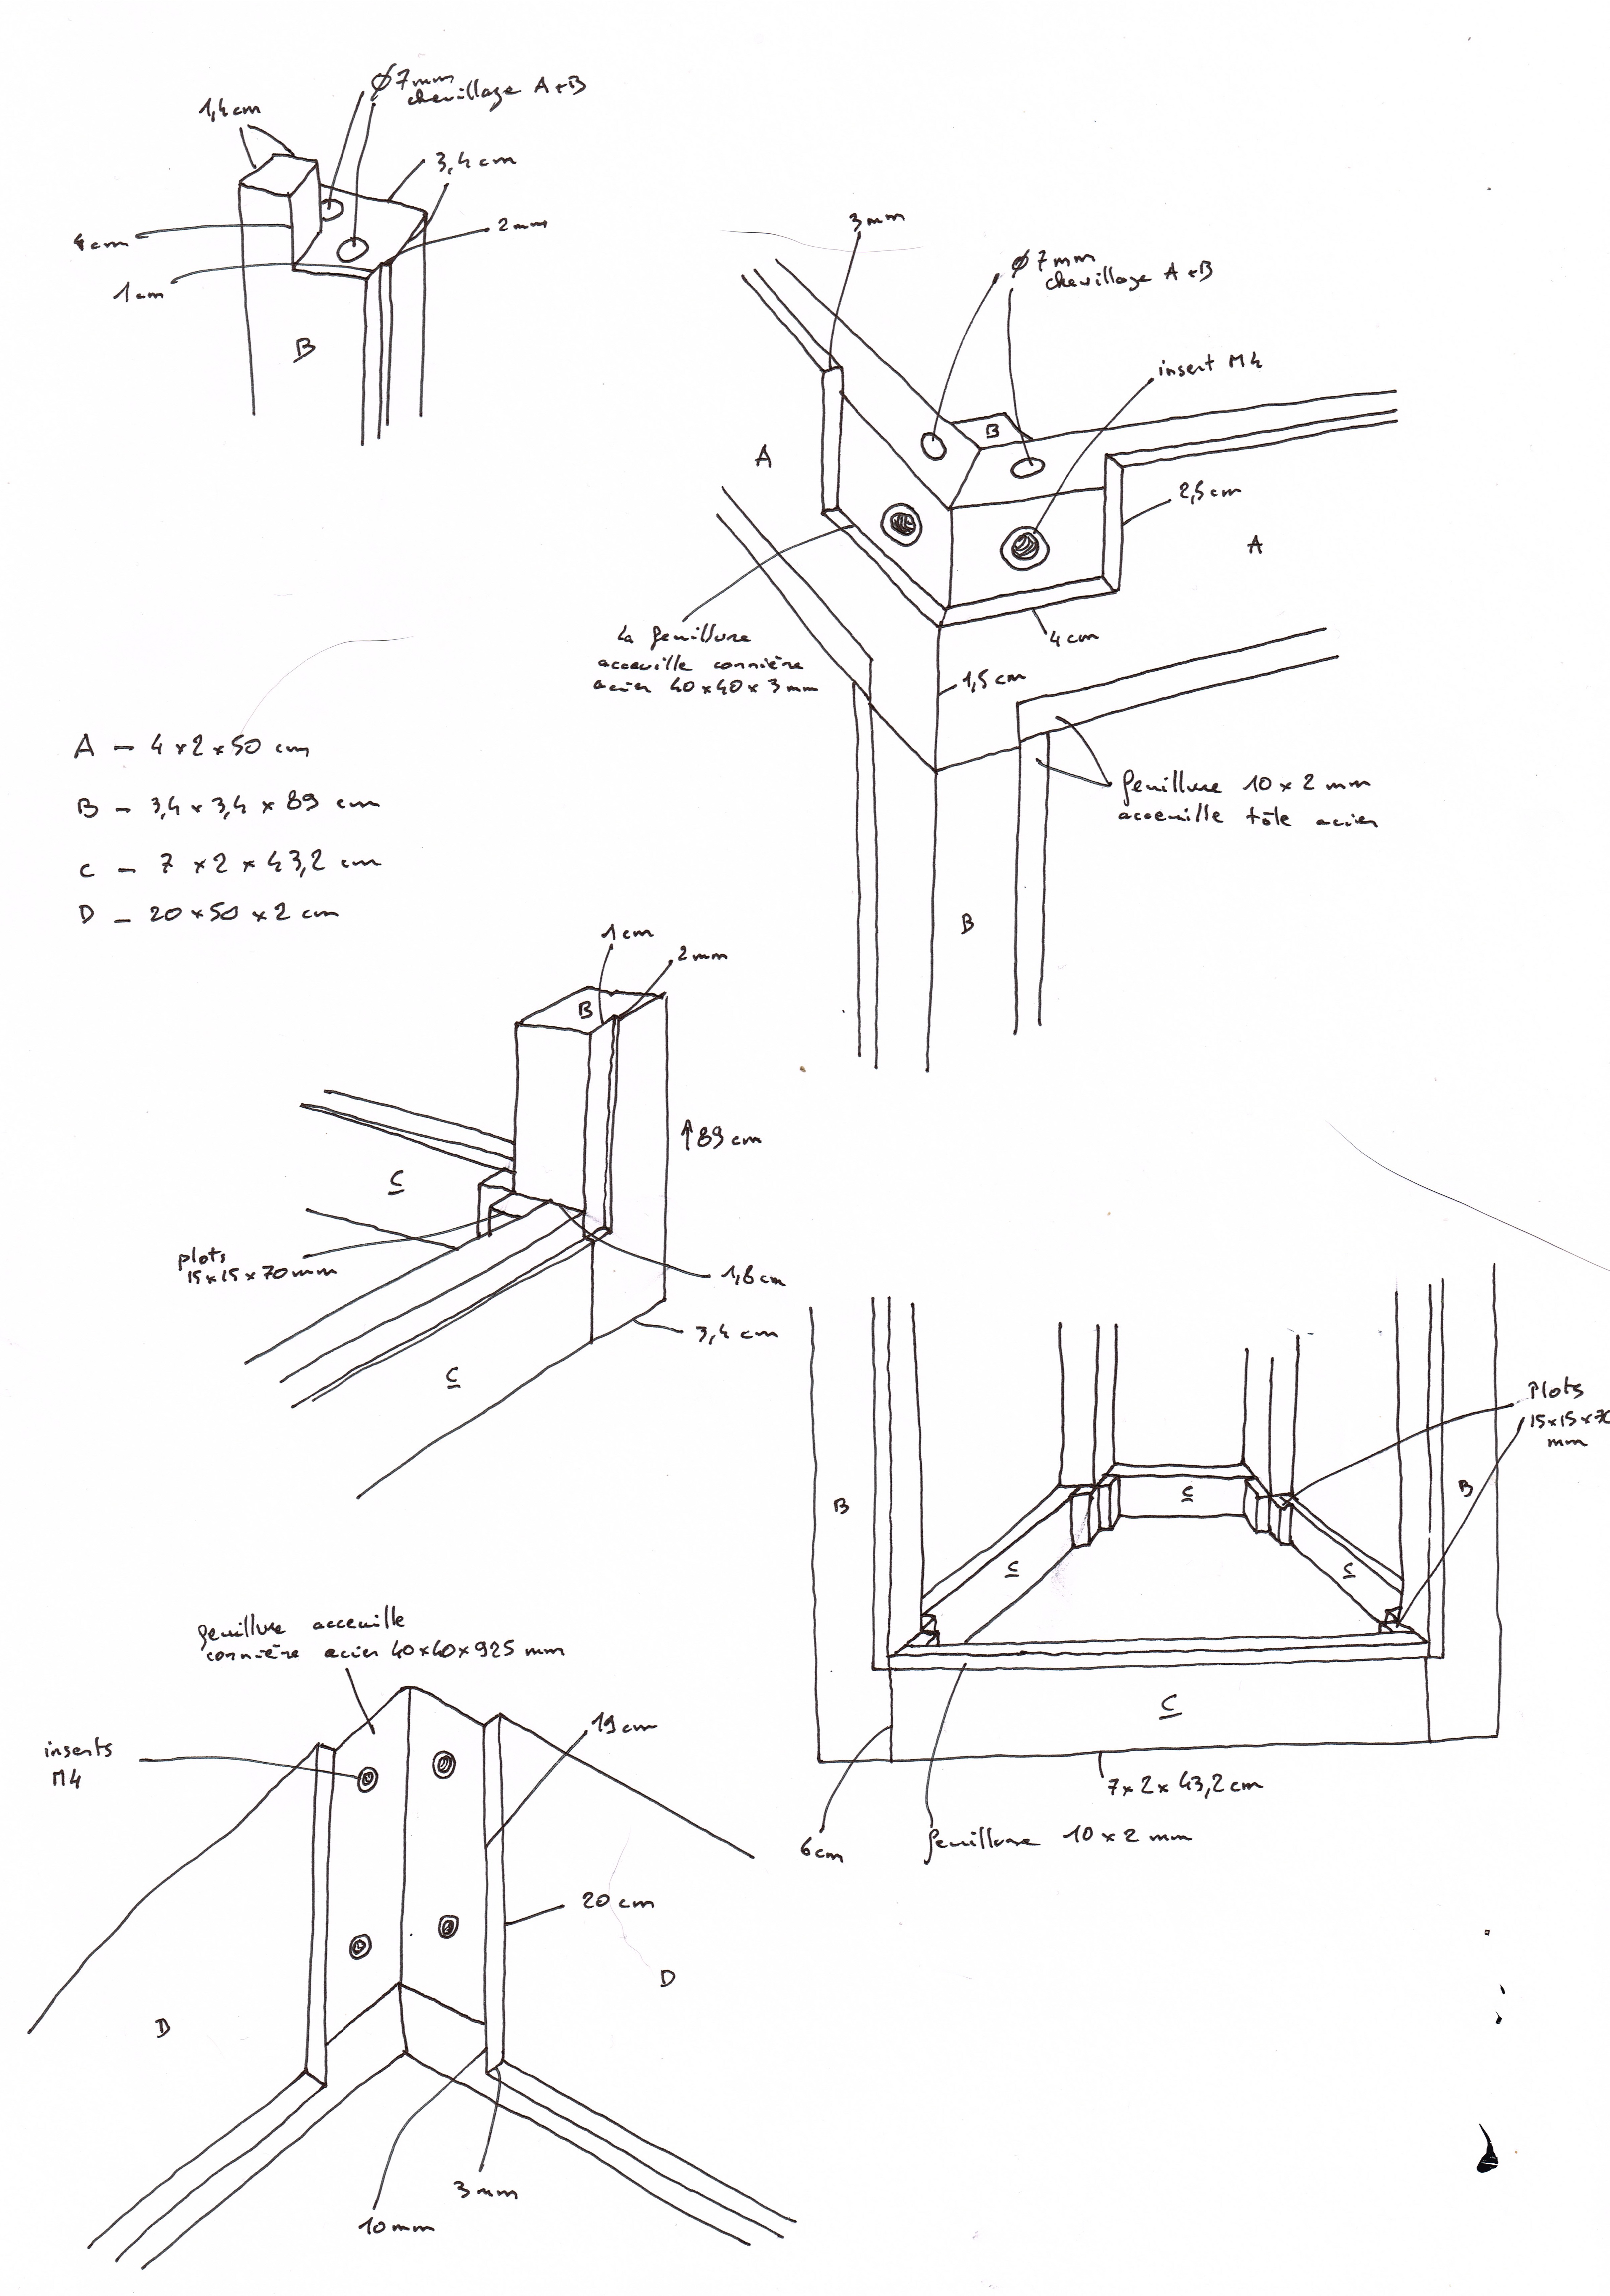 Ø 7mm
chevillage A+B
1,4 cm
3,4 cm
2 mm
4 cm
1 cm
B
3 mm
Ø 7mm
chevillage A+B
insert M4
B
A
2,5 cm
A
La feuillure
acceuille cornière
acier 40x40x3 mm
4 cm
1,5 cm
feuillure 10x2 mm
acceuille tôle acier
B
A – 4x2x50 cm
B – 3,4x3,4x89 cm
C – 7x2x43,2 cm
D – 20x50x2 cm
1 cm
2 mm
B
↑89 cm
C
plots
15x15x70mm
1,8 cm
3,4 cm
C
Plots
15x15x70
mm
B
B
C
C
C
C
7x2x43,2 cm
6 cm
feuillure 10x2 mm
feuillure acceuille
cornière acier 40x40x925 mm
inserts
M4
19 cm
20 cm
D
D
3 mm
10 mm